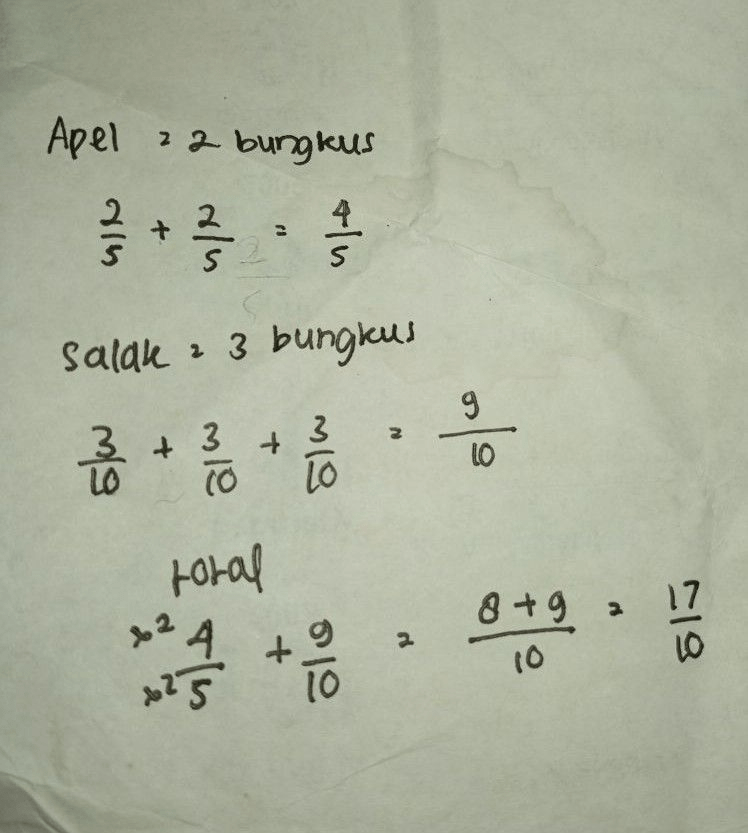 Apel = 2 bungkus
2/5 + 2/5 = 4/5
Salak = 3 bungkus
3/10 + 3/10 + 3/10 = 9/10
total
x2 4/x2 5 + 9/10 = 8+9/10 = 17/10